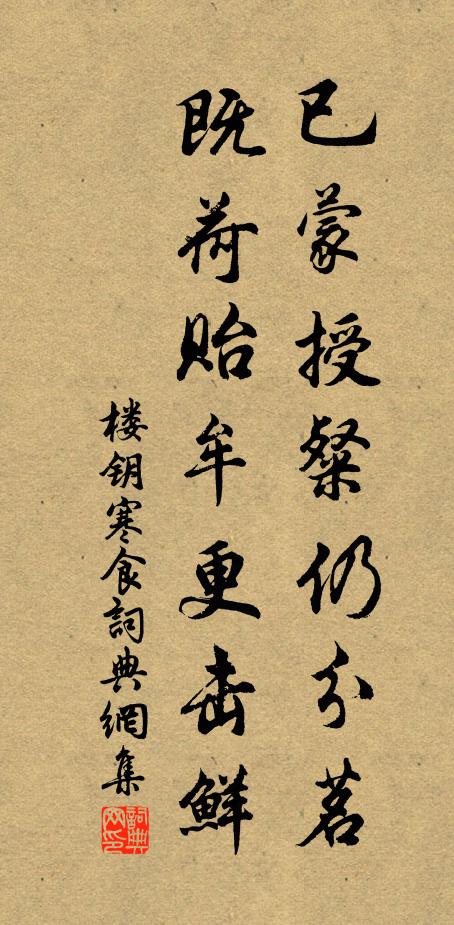 已蒙授粲仍分茗
既荷贻牟更击鲜
楼钥寒食詞典網集
詞典网印